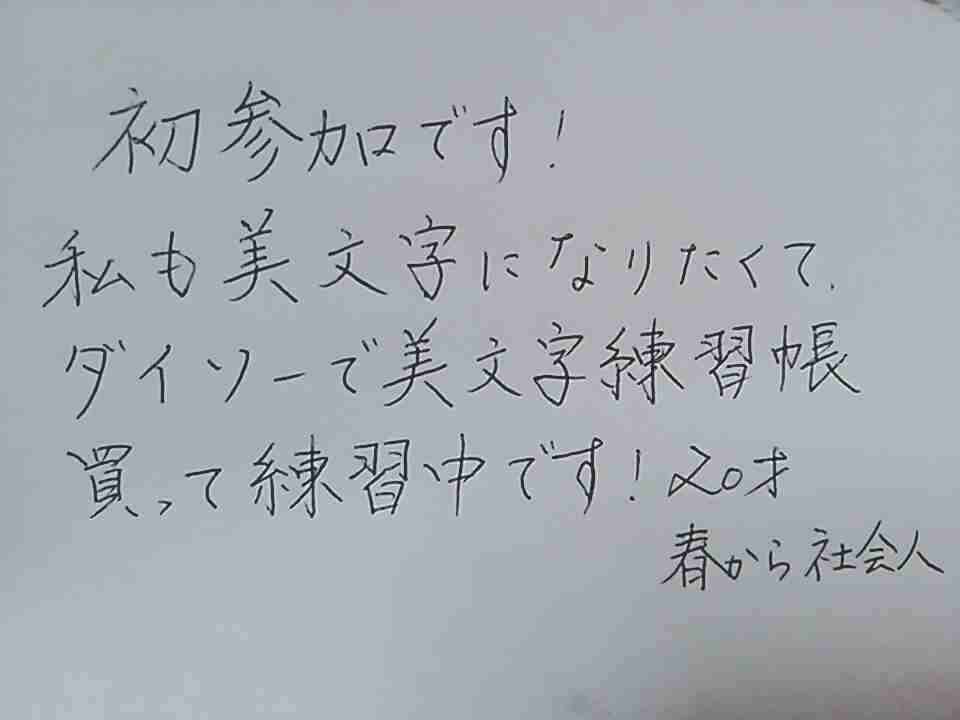 初参加です!
私も美文字になりたくて、
ダイソーで美文字練習帳
買って練習中です!20才
春から社会人